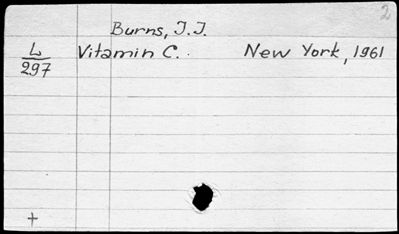 2
Burns, J.J.
L Vitamin C. New York, 1961
297
+